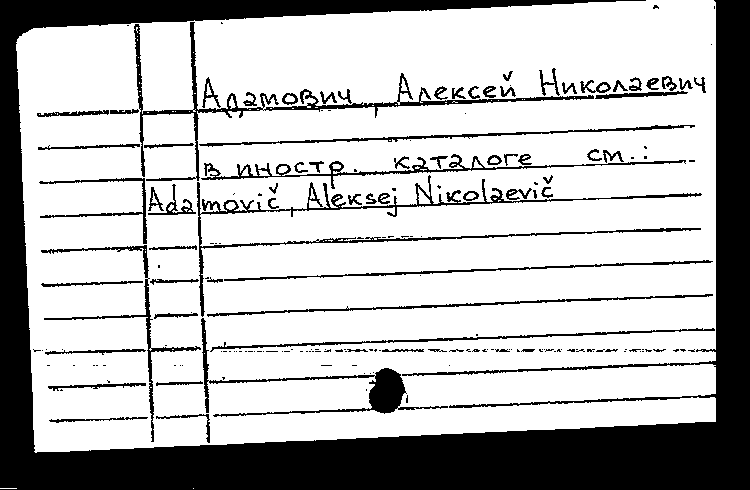 Адамович, Алексей Николаевич
в иностр. каталоге см.:
Adamovič, Aleksej Nikolaevič